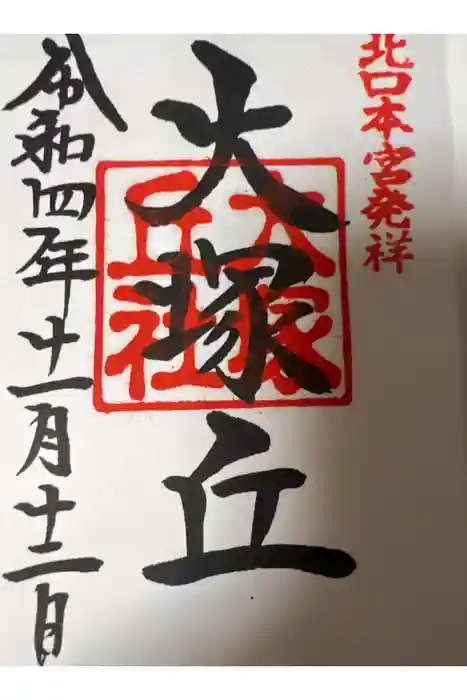 北口本宮発祥
大塚丘
大塚丘社
令和四年十一月十二日